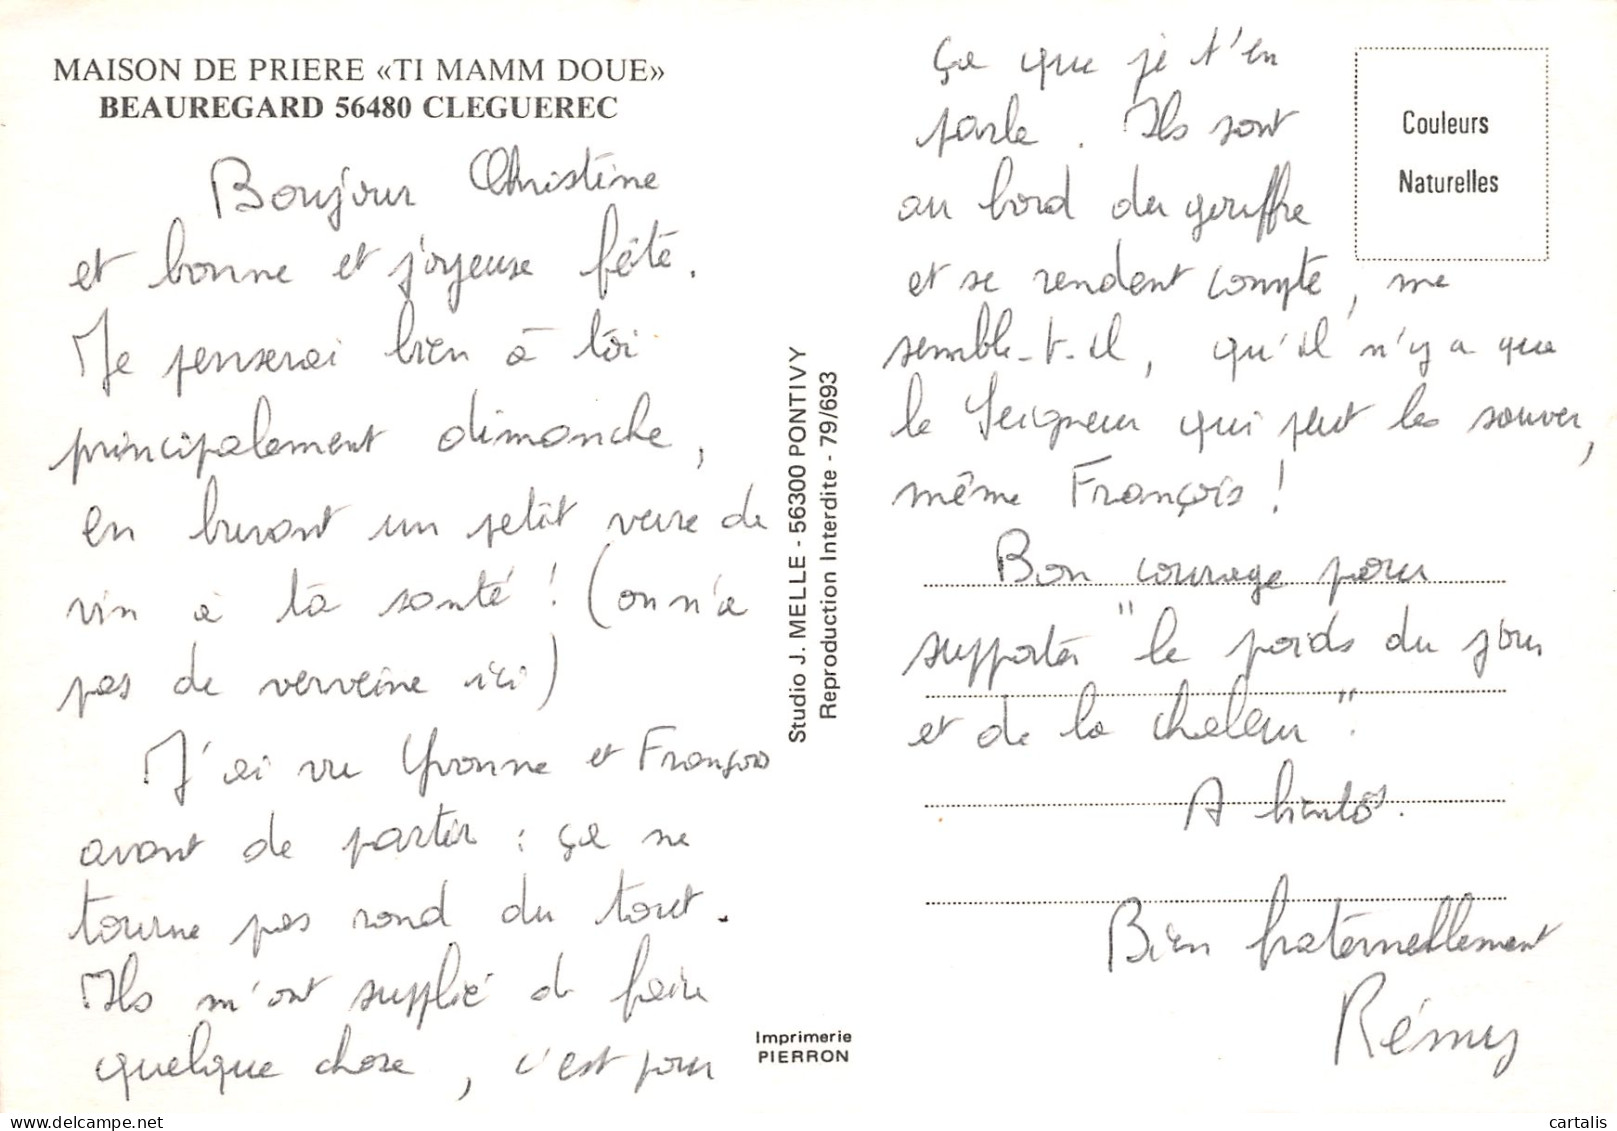 MAISON DE PRIERE «TI MAMM DOUE»
BEAUREGARD 56480 CLEGUEREC
Bonjour Christine
et bonne et joyeuse fête.
Je penserai bien à toi
principalement dimanche,
en buvant un petit verre de
vin à ta santé ! (on n'a
pas de verveine ici)
J'ai vu Yvonne et François
avant de partir : ça ne
tourne pas rond du tout.
Ils m'ont supplié de faire
quelque chose, c'est pour
ça que je t'en
parle. Ils sont
au bord du gouffre
et se rendent compte, me
semble-t-il, qu'il n'y a que
le Seigneur qui peut les sauver,
même François !
Bon courage pour
supporter "le poids du jour
et de la chaleur".
A bientôt.
Bien fraternellement
Rémy
Studio J. MELLE - 56300 PONTIVY
Reproduction Interdite - 79/693
Imprimerie
PIERRON
Couleurs
Naturelles
cartalis